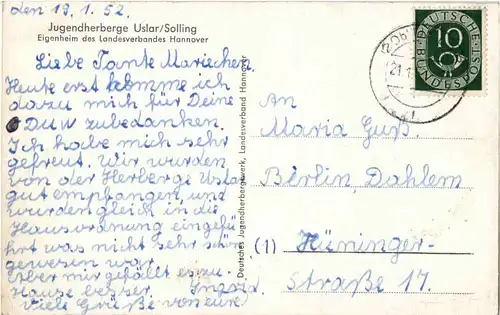 den 19.1.52.
Jugendherberge Uslar/Solling
Eigenheim des Landesverbandes Hannover
Liebe Tante Mariechen.
Heute erst komme ich
dazu mich für Deine
zubedanken.
Ich habe mich sehr
gefreut. Wir wurden
von der Herberge Uslar
gut empfangen, und
wurden gleich in die
Hausordnung eingefü
hrt was nicht sehr schön
gewesen war.
Aber mir gefällt es zu
Hause besser.
Viele Grüße von eure
Deutsches Jugendherbergswerk, Landesverband Hannover
DEUTSCHE BUNDESPOST
10
21.1
An
Maria Guß.
Berlin, Dahlem
(1) Hüninger-
Straße 17.